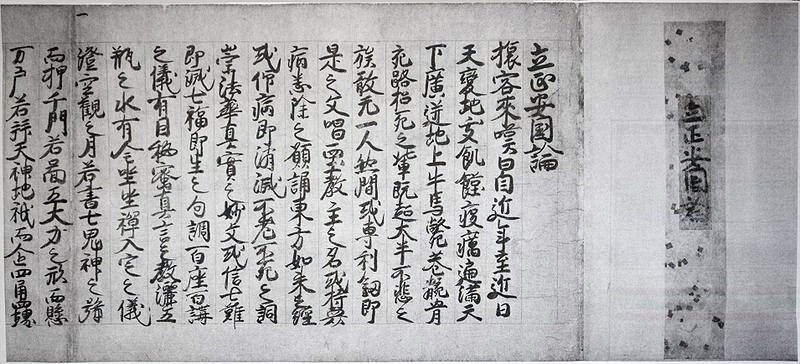 立正安国論
立正安国論
旅客來嘆曰自近年至近日
天變地夭飢饉疫癘遍滿天
下廣迸地上牛馬斃巷骸骨
充路招死之輩既超大半不悲之
族敢无一人然間或専利劔即
是之文唱西土教主之名或恃衆
病悉除之願誦東方如來之經
或仰病即消滅不老不死之詞
崇法華真實之妙文或信七難
即滅七福即生之句調百座百講
之儀有因秘密真言之教灑五
瓶之水有全坐禪入定之儀
澄空觀之月若書七鬼神之号
而押千門若圖五大力之形而懸
万戸若拜天神地祇而企四角四堺